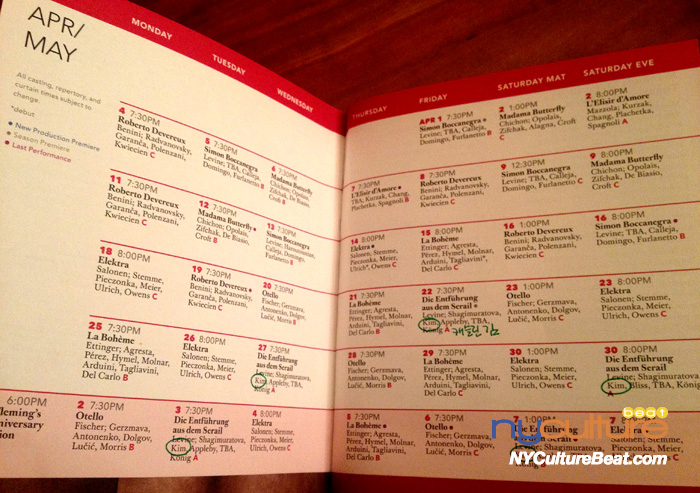 APR/
MAY
All casting, repertory, and
curtain times subject to
change.
*debut
New Production Premiere
Season Premiere
Last Performance
MONDAY
TUESDAY
WEDNESDAY
4 7:30PM
Roberto Devereux
Benini; Radvanovsky,
Garanča, Polenzani,
Kwiecien C
5 7:30PM
Simon Boccanegra
Levine; TBA, Calleja,
Domingo, Furlanetto B
6 7:30PM
Madama Butterfly
Chichon; Opolais,
Zifchak, De Biasio,
Croft B
11 7:30PM
Roberto Devereux
Benini; Radvanovsky,
Garanča, Polenzani,
Kwiecien C
12 7:30PM
Madama Butterfly
Chichon; Opolais,
Zifchak, De Biasio,
Croft B
13 7:30PM
Simon Boccanegra
Levine; Haroutounian,
Calleja, Domingo,
Furlanetto B
18 8:00PM
Elektra
Salonen; Stemme,
Pieczonka, Meier,
Ulrich, Owens C
19 7:30PM
Roberto Devereux
Benini; Radvanovsky,
Garanča, Polenzani,
Kwiecien C
20 7:30PM
Otello
Fischer; Gerzmava,
Antonenko, Dolgov,
Lučić, Morris B
25 7:30PM
La Bohème
Ettinger; Agresta,
Pérez, Hymel, Molnar,
Arduini, Tagliavini,
Del Carlo B
26 8:00PM
Elektra
Salonen; Stemme,
Pieczonka, Meier,
Ulrich, Owens C
27 7:30PM
Die Entführung
aus dem Serail
Levine; Shagimuratova,
Kim, Appleby, TBA,
König A
6:00PM
leming's
niversary
ion
2 7:30PM
Otello
Fischer; Gerzmava,
Antonenko, Dolgov,
Lučić, Morris B
3 7:30PM
Die Entführung
aus dem Serail
Levine; Shagimuratova,
Kim, Appleby, TBA,
König A
4 8:00PM
Elektra
Salonen; Stemme,
Pieczonka, Meier,
Ulrich, Owens C
THURSDAY
FRIDAY
SATURDAY MAT
SATURDAY EVE
APR 1 7:30PM
Simon Boccanegra
Levine; TBA, Calleja,
Domingo, Furlanetto B
2 1:00PM
Madama Butterfly
Chichon; Opolais,
Zifchak, Alagna, Croft
C
2 8:00PM
L'Elisir d'Amore
Mazzola; Kurzak,
Chang, Plachetka,
Spagnoli A
7 7:30PM
L'Elisir d'Amore
TBA; Kurzak, Chang,
Plachetka, Spagnoli B
8 7:30PM
Roberto Devereux
Benini; Radvanovsky,
Garanča, Polenzani,
Kwiecien C
9 12:30PM
Simon Boccanegra
Levine; TBA, Calleja,
Domingo, Furlanetto C
9 8:00PM
Madama Butterfly
Chichon; Opolais,
Zifchak, De Biasio,
Croft C
14 8:00PM
Elektra
Salonen; Stemme,
Pieczonka, Meier,
Ulrich*, Owens C
15 8:00PM
La Bohème
Ettinger; Agresta,
Pérez, Hymel, Molnar,
Arduini, Tagliavini*,
Del Carlo C
16 1:00PM
Roberto Devereux
Benini; Radvanovsky,
Garanča, Polenzani,
Kwiecien C
16 8:00PM
Simon Boccanegra
Levine; TBA, Calleja,
Domingo, Furlanetto B
21 7:30PM
La Bohème
Ettinger; Agresta,
Pérez, Hymel, Molnar,
Arduini, Tagliavini,
Del Carlo B
22 7:30PM
Die Entführung
aus dem Serail
Levine; Shagimuratova,
Kim, Appleby, TBA,
König A
캐슬린 김
23 1:00PM
Otello
Fischer; Gerzmava,
Antonenko, Dolgov,
Lučić, Morris C
23 8:00PM
Elektra
Salonen; Stemme,
Pieczonka, Meier,
Ulrich, Owens C
28 7:30PM
Otello
Fischer; Gerzmava,
Antonenko, Dolgov,
Lučić, Morris B
29 7:30PM
La Bohème
Ettinger; Agresta,
Pérez, Hymel, Molnar,
Arduini, Tagliavini,
Del Carlo C
30 1:00PM
Elektra
Salonen; Stemme,
Pieczonka, Meier,
Ulrich, Owens C
30 8:00PM
Die Entführung
aus dem Serail
Levine; Shagimuratova,
Kim, Bliss, TBA, König
A
5 7:30PM
La Bohème
Ettinger; Agresta,
Pérez, Hymel, Molnar,
Arduini, Tagliavini,
Del Carlo B
6 7:30PM
Otello
Fischer; Gerzmava,
Antonenko, Dolgov,
Lučić, Morris C
7
Die Entführung
7 8:00PM
nyculture
beat
NYCultureBeat.com